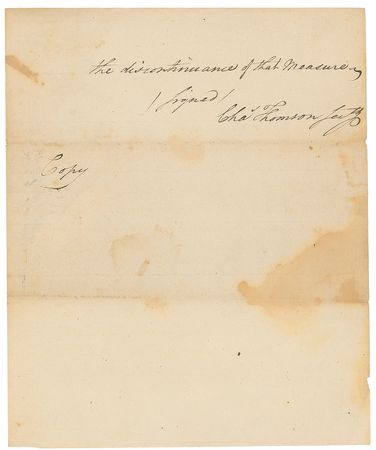 the discontinuance of that Measure
/ Signed /
Chas Thomson Secy
Copy